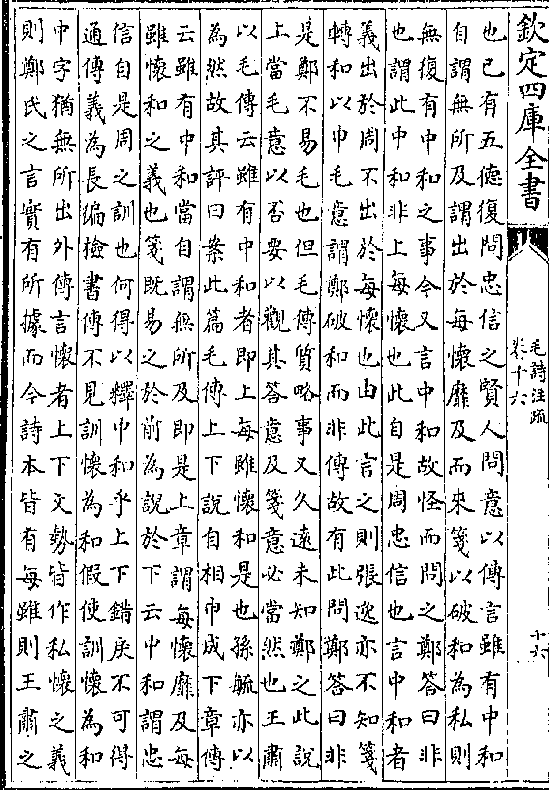 欽定四庫全書
毛詩注疏
卷十六
十六
也已有五德復問忠信之賢人問意以傳言雖有中和
自謂無所及謂出於每懷靡及而來箋以破和為私則
無復有中和之事今又言中和故怪而問之鄭答曰非
也謂此中和非上每懷也此自是周忠信也言中和者
義出於周不出於每懷也由此言之則張逸亦不知箋
轉和以中毛意謂鄭破和而非傳故有此問鄭答曰非
是鄭不易毛也但毛傳質略事又久遠未知鄭之此說
上當毛意以否要以觀其答意及箋意必當然也王肅
以毛傳云雖有中和者即上每雖懷和是也孫毓亦以
為然故其評曰案此篇毛傳上下說自相申成下章傳
云雖有中和當自謂無所及即是上章謂每懷靡及每
雖懷和之義也箋既易之於前為說於下云中和謂忠
信自是周之訓也何得以釋中和乎上下錯戾不可得
通傳義為長徧檢書傳不見訓懷為和假使訓懷為和
中字猶無所出外傳言懷者上下文勢皆作私懷之義
則鄭氏之言實有所據而今詩本皆有每雖則王肅之